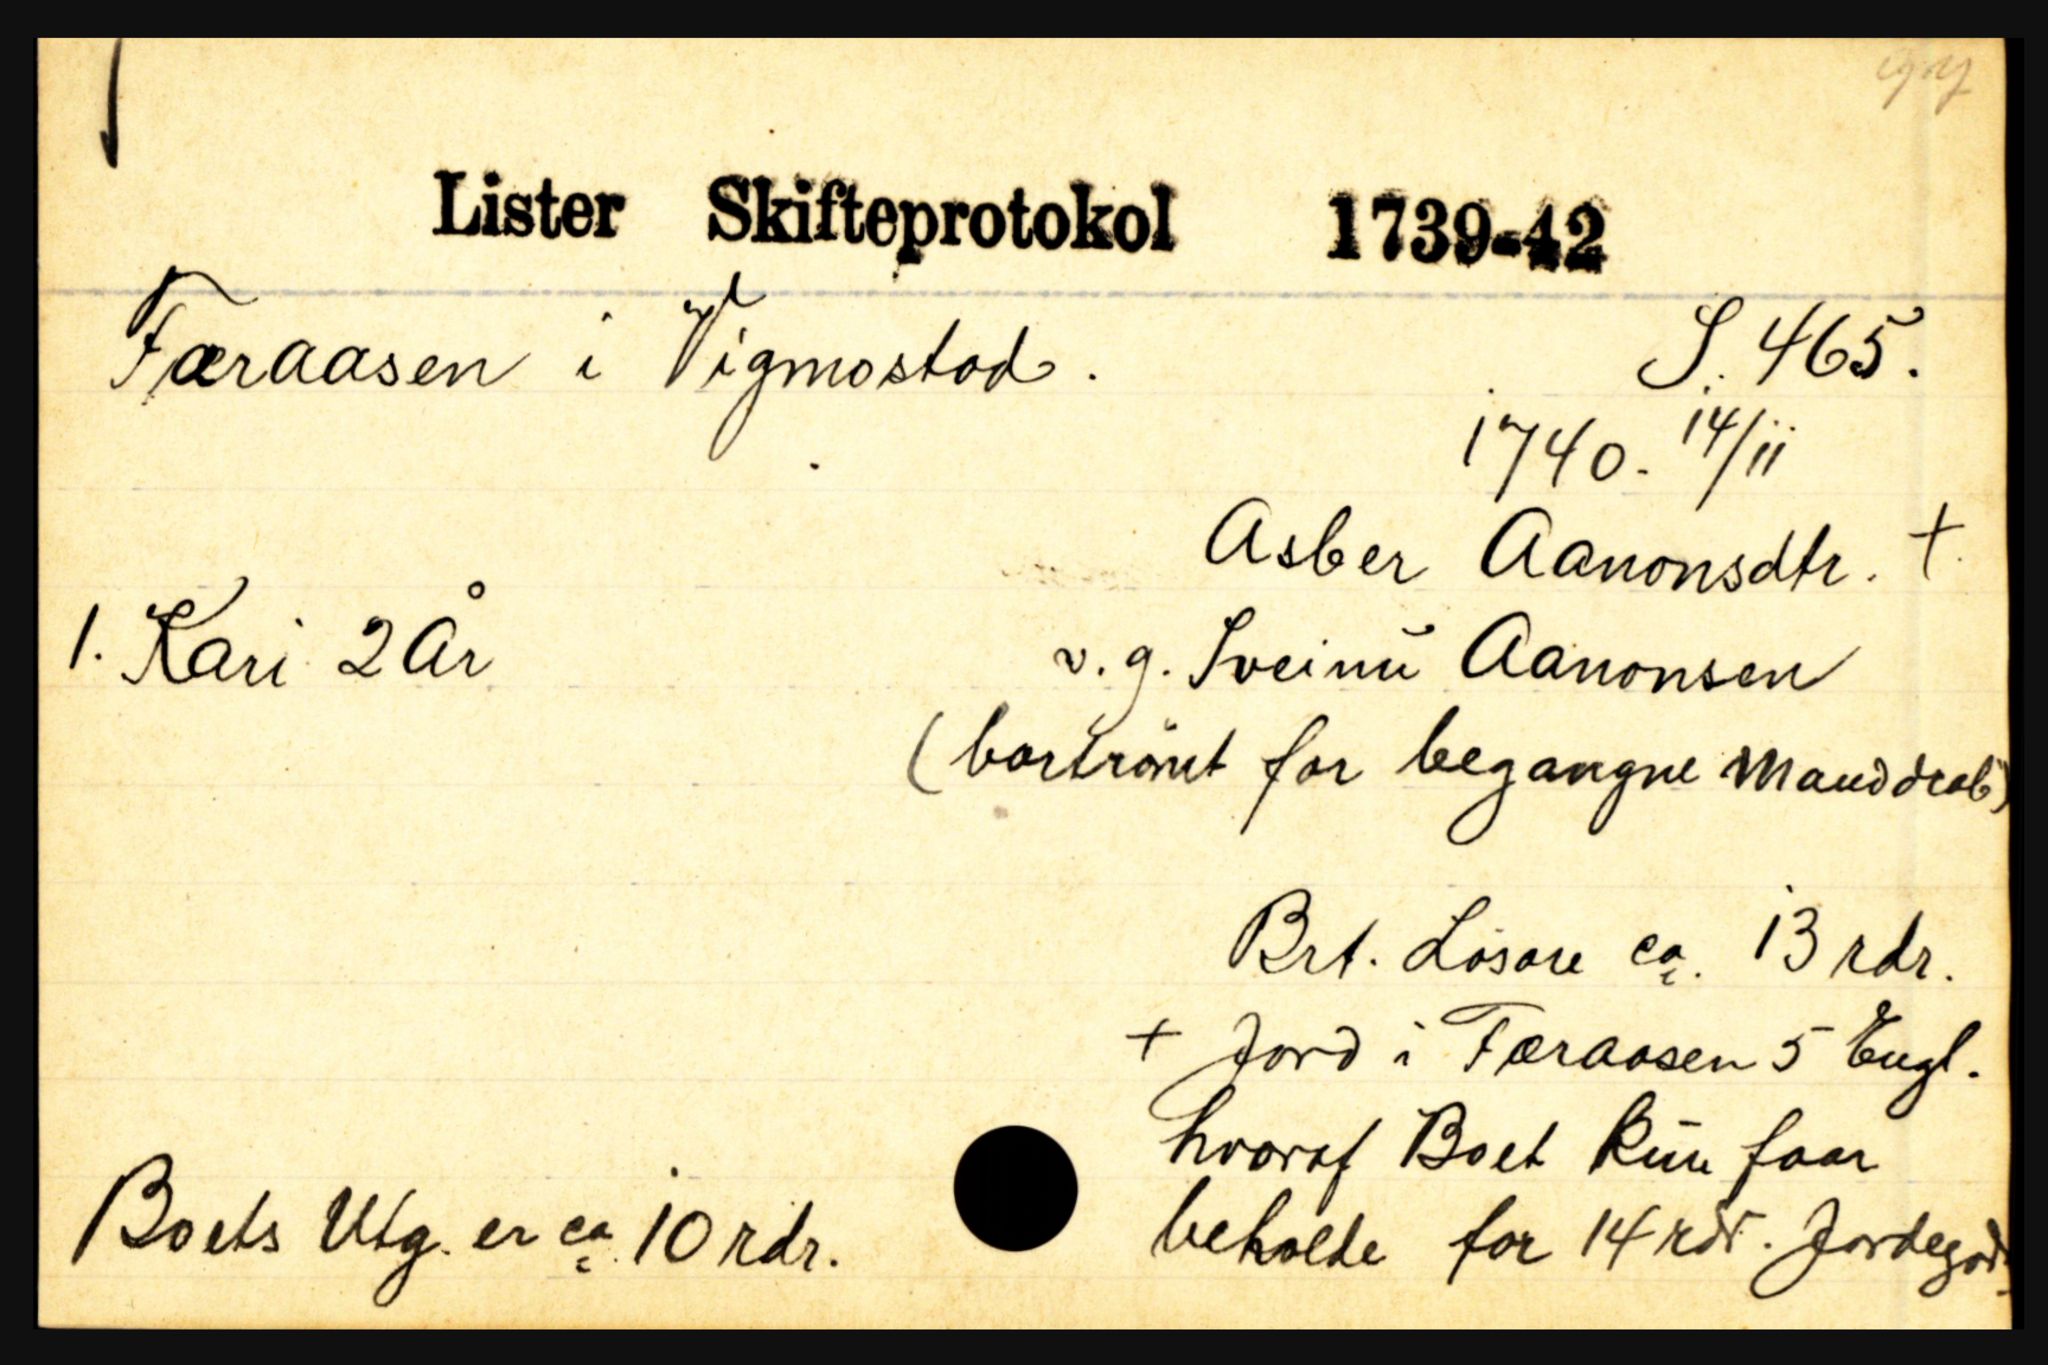 Lister Skifteprotokol 1739-42
Færaasen i Vigmostad.
S. 465.
1740. 14/11
Asber Aanonsdtr. +
1. Kari 2 År
v. g. Sveinŭ Aanonsen
(bortrömt for begangne Manddrab)
Brt. Lösöre ca. 13 rdr.
+ Jord i Færaasen 5 Engl.
hvoraf Boet kŭn faar
beholde for 14 rdr. Jordegods
Boets Utg. er ca. 10 rdr.